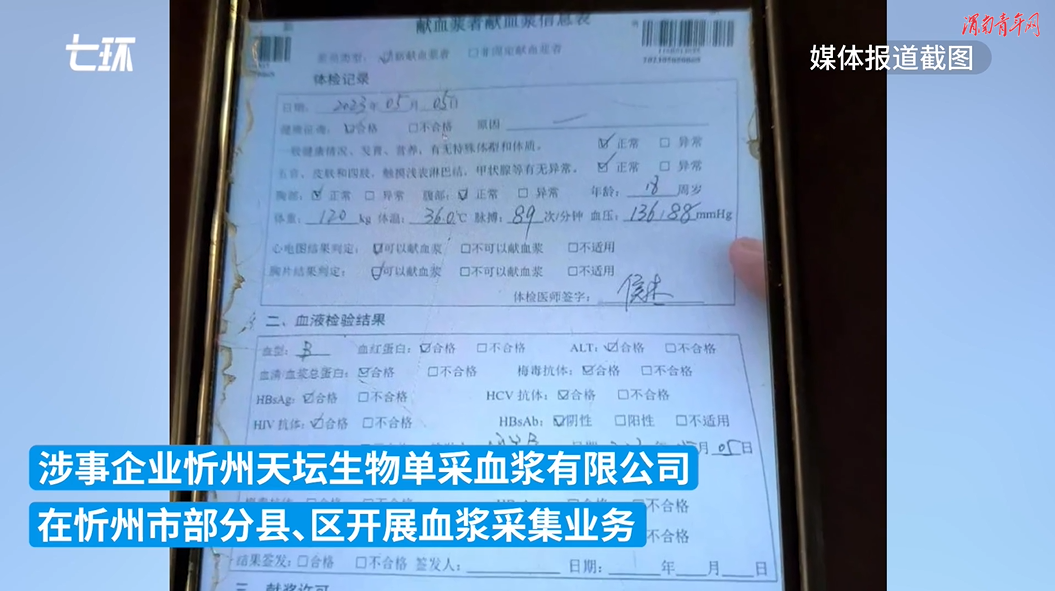 七环
渭南青年网
媒体报道截图
献血浆者献血浆信息表
体检记录
日期: 2023年 05月 05日
☑合格 □不合格 原因
一般健康情况、发育、营养、有无特殊体型和体质。 ☑正常 □异常
五官、皮肤和四肢、触摸浅表淋巴结、甲状腺等有无异常。 ☑正常 □异常
胸部: ☑正常 □异常 腹部: ☑正常 □异常 年龄: 18 周岁
体重: 120 kg 体温: 36.0℃ 脉搏: 89 次/分钟 血压: 136/88 mmHg
心电图结果判定: ☑可以献血浆 □不可以献血浆 □不适用
胸片结果判定: ☑可以献血浆 □不可以献血浆 □不适用
体检医师签字:
二、血液检验结果
血型: B 血红蛋白: ☑合格 □不合格 ALT: ☑合格 □不合格
血清/血浆总蛋白: ☑合格 □不合格 梅毒抗体: ☑合格 □不合格
HBsAg: ☑合格 □不合格 HCV 抗体: ☑合格 □不合格
HIV 抗体: ☑合格 □不合格 HBsAb: ☑阴性 □阳性 □不适用
月 05日
涉事企业忻州天坛生物单采血浆有限公司
在忻州市部分县、区开展血浆采集业务
不合格
结果签发: □合格 □不合格 签发人: 日期: 年 月 日